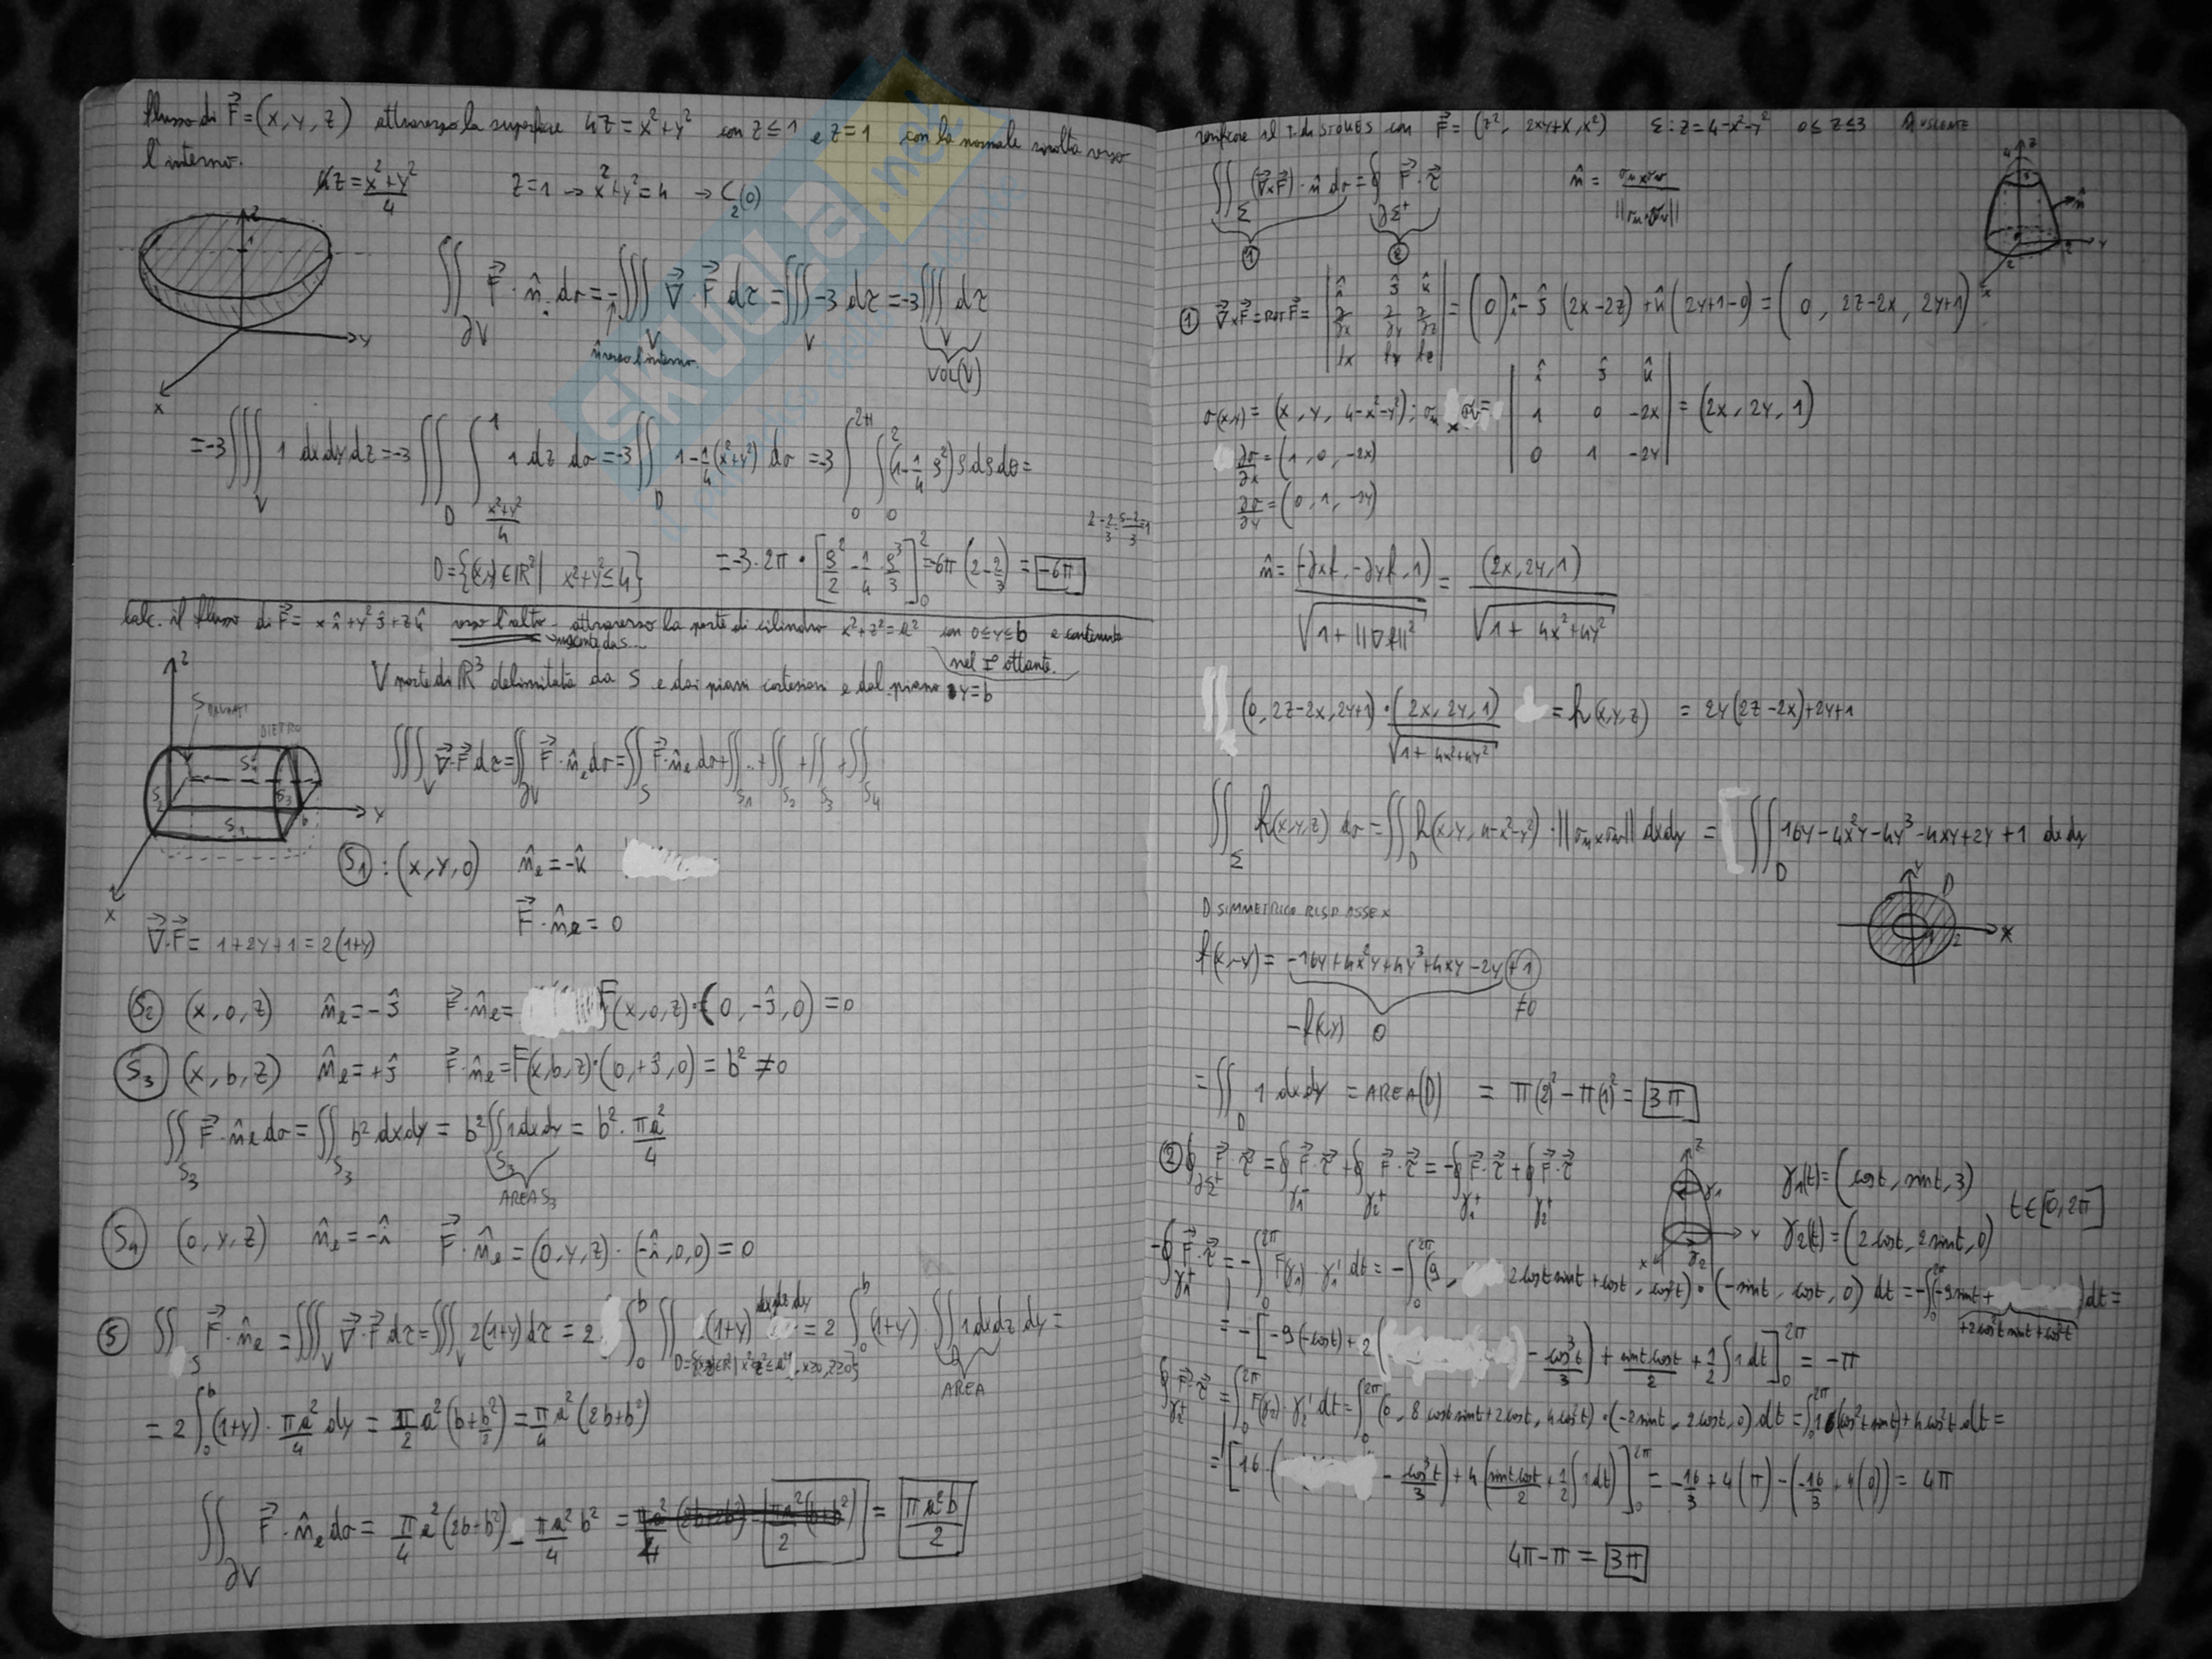 flusso di F⃗ = (x, y, z) attraverso la superficie 4z = x²+y² con z ≤ 1 e z = 1 con la normale rivolta verso
l'interno.
z = x²+y²/4   z=1 → x²+y²=4 → C₂(0)
∬∂V F⃗·n̂ dσ = -∭V ∇⃗·F⃗ dτ = ∭V -3 dτ = -3∭V dτ
n̂ verso l'interno
VOL(V)
= -3∭V 1 dxdydz = -3∬D ∫_{x²+y²/4}^{1} 1 dz dσ = -3∬D 1-1/4(x²+y²) dσ = -3∫₀^{2π}∫₀²(1-1/4ρ²)ρdρdθ =
D={(x,y)∈ℝ²| x²+y²≤4}   = -3·2π·[ρ²/2 - 1/4 ρ³/3]₀² = -6π(2-2/3) = -6π
Calc. il flusso di F⃗ = x î + y² ĵ + z k̂ verso l'alto attraverso la parte di cilindro x²+z²=a² con 0≤y≤b e contenuta
nel I° ottante.
V parte di ℝ³ delimitata da S e dai piani cartesiani e dal piano y=b
S DAVANTI
DIETRO
∭V ∇⃗·F⃗ dτ = ∬∂V F⃗·n̂e dσ = ∬S F⃗·n̂e dσ + ∬S₁ .. + ∬S₂ + ∬S₃ + ∬S₄
S₁ : (x, y, 0)   n̂e = -k̂
F⃗·n̂e = 0
∇⃗·F⃗ = 1+2y+1 = 2(1+y)
S₂ (x, 0, z)   n̂e = -ĵ   F⃗·n̂e = F(x,0,z)·(0,-ĵ,0) = 0
S₃ (x, b, z)   n̂e = +ĵ   F⃗·n̂e = F(x,b,z)·(0,+ĵ,0) = b² ≠ 0
∬S₃ F⃗·n̂e dσ = ∬S₃ b² dxdy = b²∬S₃ 1dxdy = b²·πa²/4
AREA S₃
S₄ (0, y, z)   n̂e = -î   F⃗·n̂e = (0,y,z)·(-î,0,0) = 0
S ∬S F⃗·n̂e = ∭V ∇⃗·F⃗ dτ = ∭V 2(1+y)dτ = 2∫₀ᵇ∬ (1+y) dxdz dy = 2∫₀ᵇ(1+y)·∬D 1dxdz dy =
AREA
= 2∫₀ᵇ(1+y)·πa²/4 dy = π/2 a²(b+b²/2) = π/4 a²(2b+b²)
∬∂V F⃗·n̂e dσ = π/4 a²(2b+b²) - πa²/4 b² = πa²b/2
verificare il T. di STOKES con F⃗ = (z², 2xy+x, x²)   Σ: z=4-x²-y²   0≤z≤3   n̂ USCENTE
∬Σ (∇⃗×F⃗)·n̂ dσ = ∮∂Σ⁺ F⃗·τ⃗   n̂ = σu×σv/||σu×σv||
① ②
① ∇⃗×F⃗ = ROT F⃗ = |î ĵ k̂; ∂/∂x ∂/∂y ∂/∂z; fx fy fz| = (0)î - ĵ(2x-2z) + k̂(2y+1-0) = (0, 2z-2x, 2y+1)
σ(x,y) = (x, y, 4-x²-y²); σu×σv = |î ĵ k̂; 1 0 -2x; 0 1 -2y| = (2x, 2y, 1)
∂σ/∂x = (1, 0, -2x)
∂σ/∂y = (0, 1, -2y)
n̂ = (-∂xf, -∂yf, 1)/√1+||∇f||² = (2x, 2y, 1)/√1+4x²+4y²
(0, 2z-2x, 2y+1)·(2x, 2y, 1)/√1+4x²+4y² = h(x,y,z) = 2y(2z-2x)+2y+1
∬Σ h(x,y,z) dσ = ∬D h(x,y,4-x²-y²)·||σu×σv|| dxdy = ∬D 16y-4x²y-4y³-4xy+2y+1 dxdy
D SIMMETRICO RISP ASSE X
f(x,-y) = -16y+4x²y+4y³+4xy-2y+1
-f(x,y) 0 ≠0
= ∬D 1 dxdy = AREA(D) = π(2)²-π(1)² = 3π
② ∮∂Σ⁺ F⃗·τ⃗ = ∮γ₁⁻ F⃗·τ⃗ + ∮γ₂⁺ F⃗·τ⃗ = -∮γ₁⁺ F⃗·τ⃗ + ∮γ₂⁺ F⃗·τ⃗
γ₁(t) = (cost, sint, 3)
γ₂(t) = (2cost, 2sint, 0)   t∈[0,2π]
-∮γ₁⁺ F⃗·τ⃗ = -∫₀^{2π} F(γ₁)·γ₁' dt = -∫₀^{2π} (9, 2costsint+cost, cos²t)·(-sint, cost, 0) dt = -∫₀^{2π}(-9sint+2cos²tsint+cos²t)dt =
= -[-9(-cost)+2(-cos³t/3)+sintcost/2+1/2∫1dt]₀^{2π} = -π
∮γ₂⁺ F⃗·τ⃗ = ∫₀^{2π} F(γ₂)·γ₂' dt = ∫₀^{2π}(0, 8costsint+2cost, 4cos²t)·(-2sint, 2cost, 0)dt = ∫₀^{2π}16(cos²tsint)+4cos²t dt =
= [16(-cos³t/3)+4(sintcost/2+1/2∫1dt)]₀^{2π} = -16/3+4(π)-(-16/3+4(0)) = 4π
4π-π = 3π
SKUOLA.net